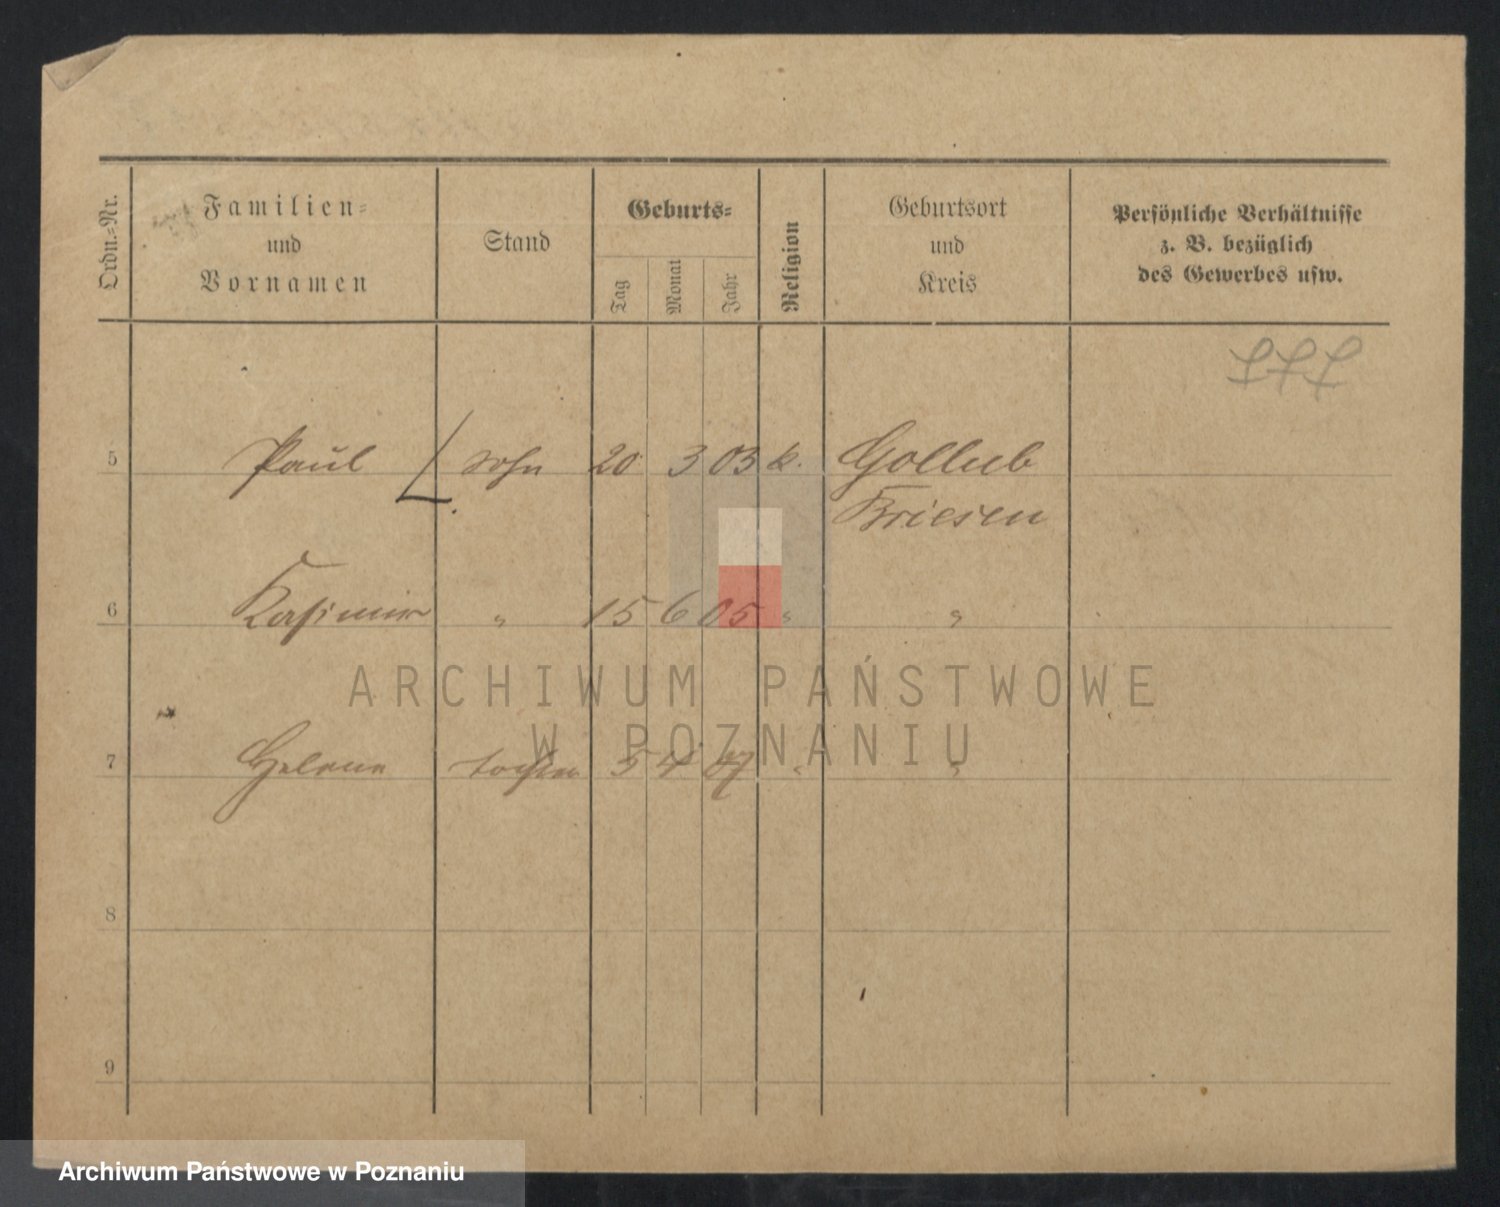 Ordn.-Nr. Familien- und Vornamen Stand Geburts- Tag Monat Jahr Religion Geburtsort und Kreis Persönliche Verhältnisse z. B. bezüglich des Gewerbes usw.
5 Paul sohn 20 3 03 k. Gollub
Briesen
6 Kasimir " 15 6 05 " "
ARCHIWUM PAŃSTWOWE
W POZNANIU
7 Helene 5 4 07 " "
8
9
Archiwum Państwowe w Poznaniu